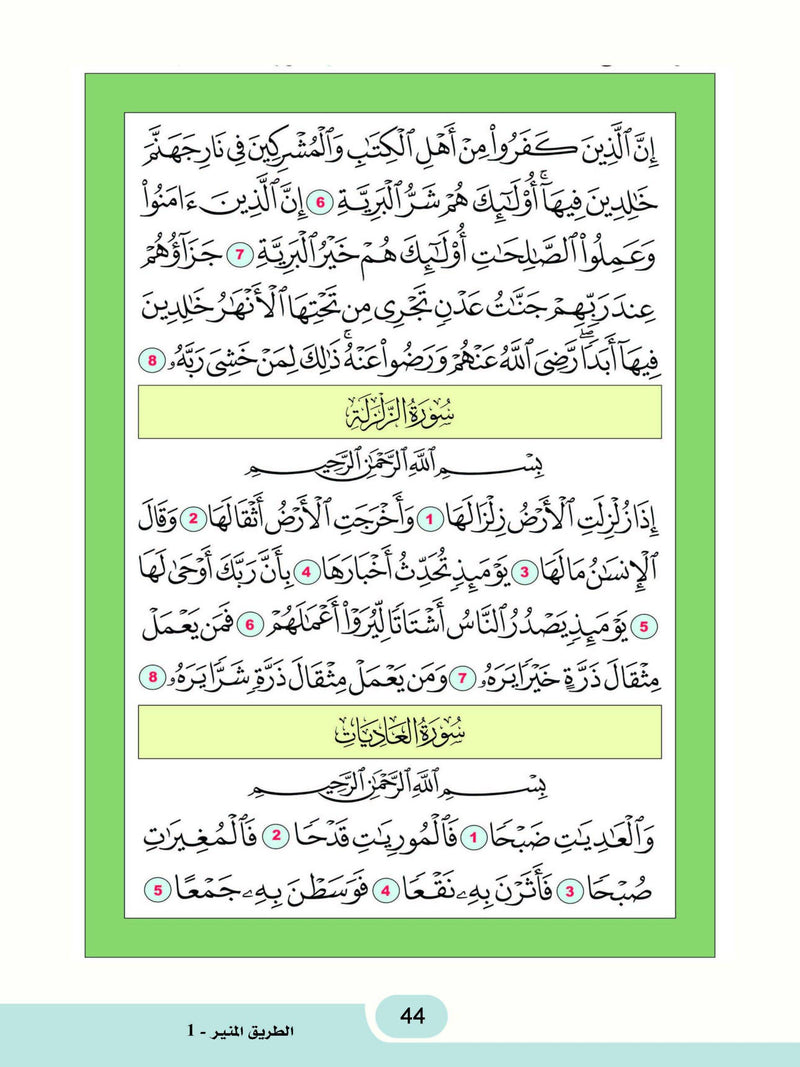 إِنَّ ٱلَّذِينَ كَفَرُوا۟ مِنْ أَهْلِ ٱلْكِتَٰبِ وَٱلْمُشْرِكِينَ فِى نَارِ جَهَنَّمَ
خَٰلِدِينَ فِيهَآ ۚ أُو۟لَٰٓئِكَ هُمْ شَرُّ ٱلْبَرِيَّةِ 6 إِنَّ ٱلَّذِينَ ءَامَنُوا۟
وَعَمِلُوا۟ ٱلصَّٰلِحَٰتِ أُو۟لَٰٓئِكَ هُمْ خَيْرُ ٱلْبَرِيَّةِ 7 جَزَآؤُهُمْ
عِندَ رَبِّهِمْ جَنَّٰتُ عَدْنٍ تَجْرِى مِن تَحْتِهَا ٱلْأَنْهَٰرُ خَٰلِدِينَ
فِيهَآ أَبَدًا ۖ رَّضِىَ ٱللَّهُ عَنْهُمْ وَرَضُوا۟ عَنْهُ ۚ ذَٰلِكَ لِمَنْ خَشِىَ رَبَّهُۥ 8
سُورَةُ الزَّلْزَلَةِ
بِسْمِ ٱللَّهِ ٱلرَّحْمَٰنِ ٱلرَّحِيمِ
إِذَا زُلْزِلَتِ ٱلْأَرْضُ زِلْزَالَهَا 1 وَأَخْرَجَتِ ٱلْأَرْضُ أَثْقَالَهَا 2 وَقَالَ
ٱلْإِنسَٰنُ مَا لَهَا 3 يَوْمَئِذٍ تُحَدِّثُ أَخْبَارَهَا 4 بِأَنَّ رَبَّكَ أَوْحَىٰ لَهَا
5 يَوْمَئِذٍ يَصْدُرُ ٱلنَّاسُ أَشْتَاتًا لِّيُرَوْا۟ أَعْمَٰلَهُمْ 6 فَمَن يَعْمَلْ
مِثْقَالَ ذَرَّةٍ خَيْرًا يَرَهُۥ 7 وَمَن يَعْمَلْ مِثْقَالَ ذَرَّةٍ شَرًّا يَرَهُۥ 8
سُورَةُ العَادِيَاتِ
بِسْمِ ٱللَّهِ ٱلرَّحْمَٰنِ ٱلرَّحِيمِ
وَٱلْعَٰدِيَٰتِ ضَبْحًا 1 فَٱلْمُورِيَٰتِ قَدْحًا 2 فَٱلْمُغِيرَٰتِ
صُبْحًا 3 فَأَثَرْنَ بِهِۦ نَقْعًا 4 فَوَسَطْنَ بِهِۦ جَمْعًا 5
44
الطريق المنير - 1